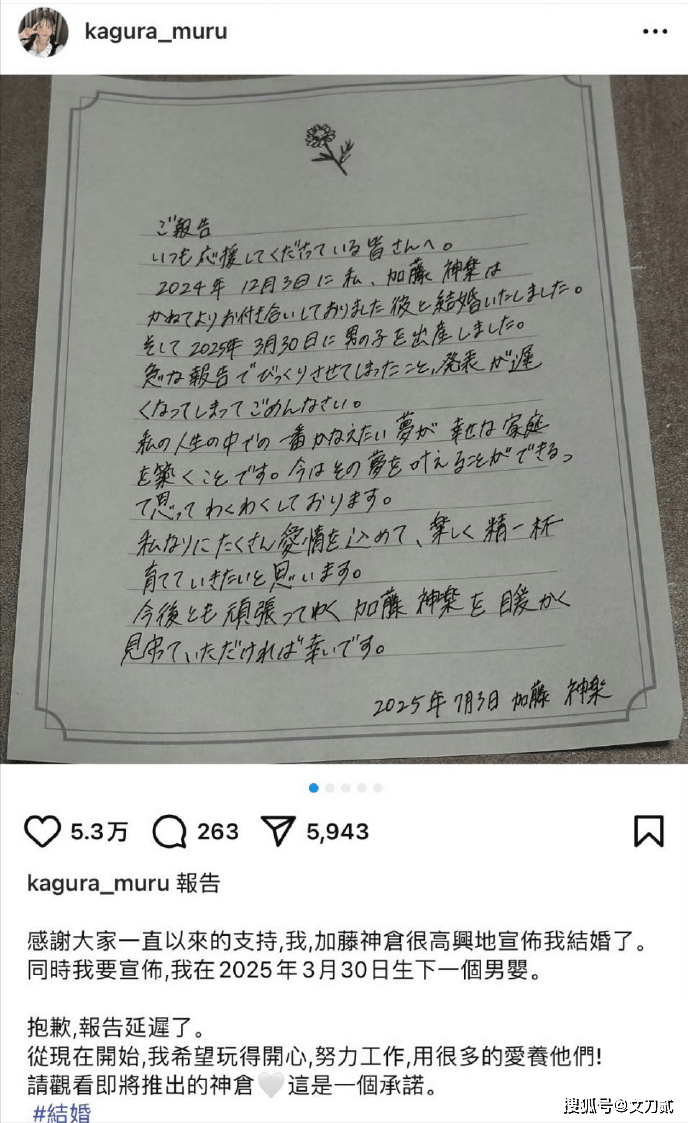 kagura_muru
ご報告
いつも応援してくださっている皆さんへ。
2024年 12月3日に 私、加藤 神楽は
かねてよりお付き合いしておりました彼と結婚いたしました。
そして 2025年 3月30日に 男の子を出産しました。
急な報告でびっくりさせてしまったこと、発表が遅
くなってしまってごめんなさい。
私の人生の中での 一番かなえたい夢が 幸せな家庭
を築くことです。今はその夢を叶えることができるっ
て思ってわくわくしております。
私なりにたくさん愛情を込めて、楽しく 精一杯
育てていきたいと思います。
今後とも頑張ってゆく 加藤 神楽を 暖かく
見守っていただければ幸いです。
2025年 7月3日 加藤 神楽
5.3万 263 5,943
kagura_muru 報告
感謝大家一直以來的支持,我,加藤神倉很高興地宣佈我結婚了。
同時我要宣佈,我在2025年3月30日生下一個男嬰。
抱歉,報告延遲了。
從現在開始,我希望玩得開心,努力工作,用很多的愛養他們!
請觀看即將推出的神倉🤍這是一個承諾。
#結婚
搜狐号@文刀贰